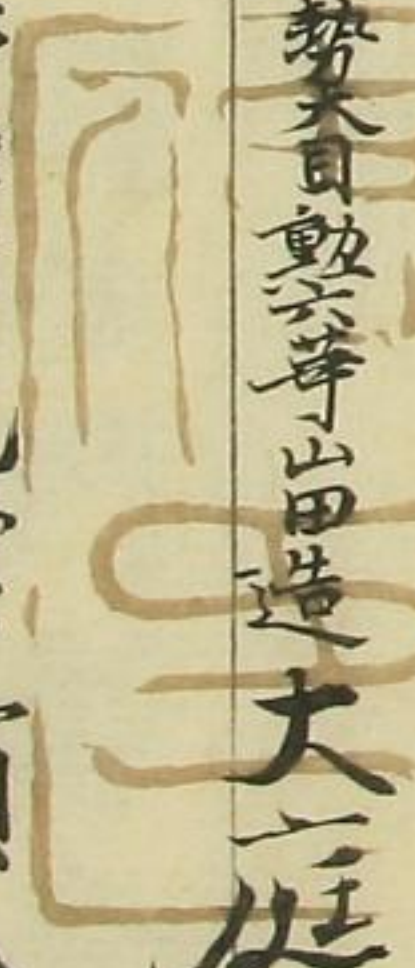 勢大目勲六等山田造大庭